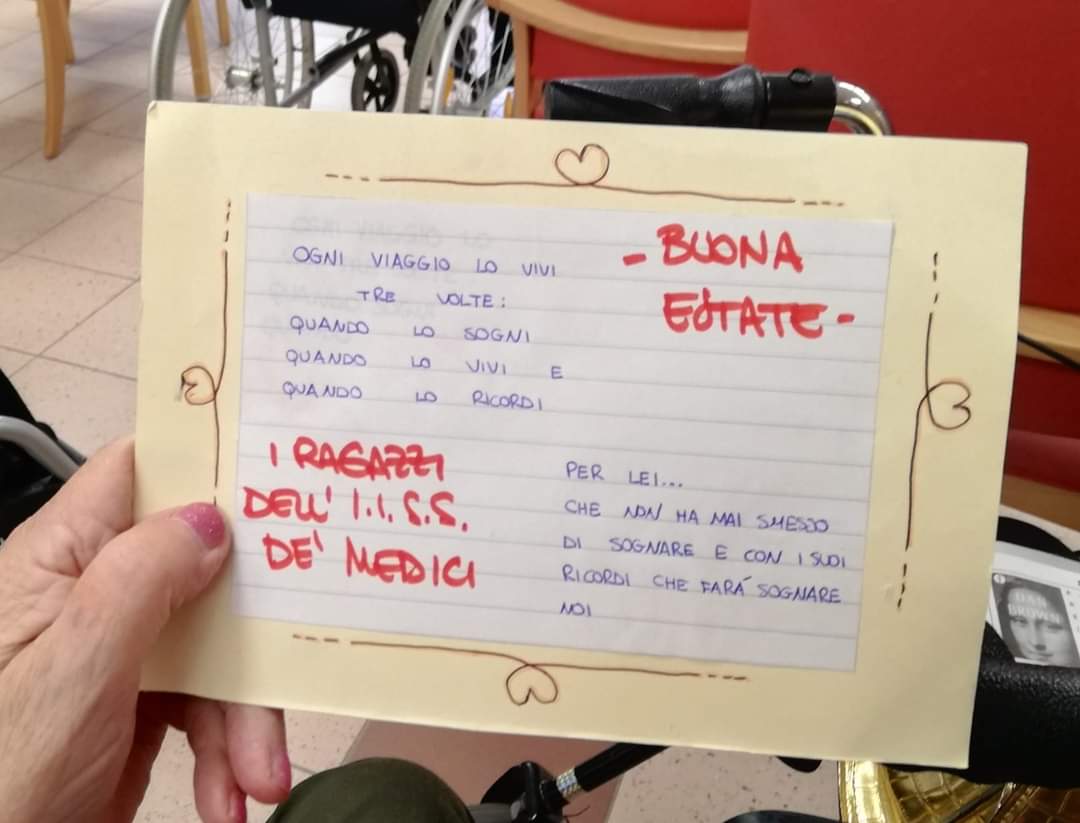 OGNI VIAGGIO LO VIVI
TRE VOLTE:
QUANDO LO SOGNI
QUANDO LO VIVI E
QUANDO LO RICORDI
- BUONA
ESTATE -
I RAGAZZI
DELL' I.I.S.S.
DE' MEDICI
PER LEI...
CHE NON HA MAI SMESSO
DI SOGNARE E CON I SUOI
RICORDI CHE FARÁ SOGNARE
NOI
DAN
BROWN